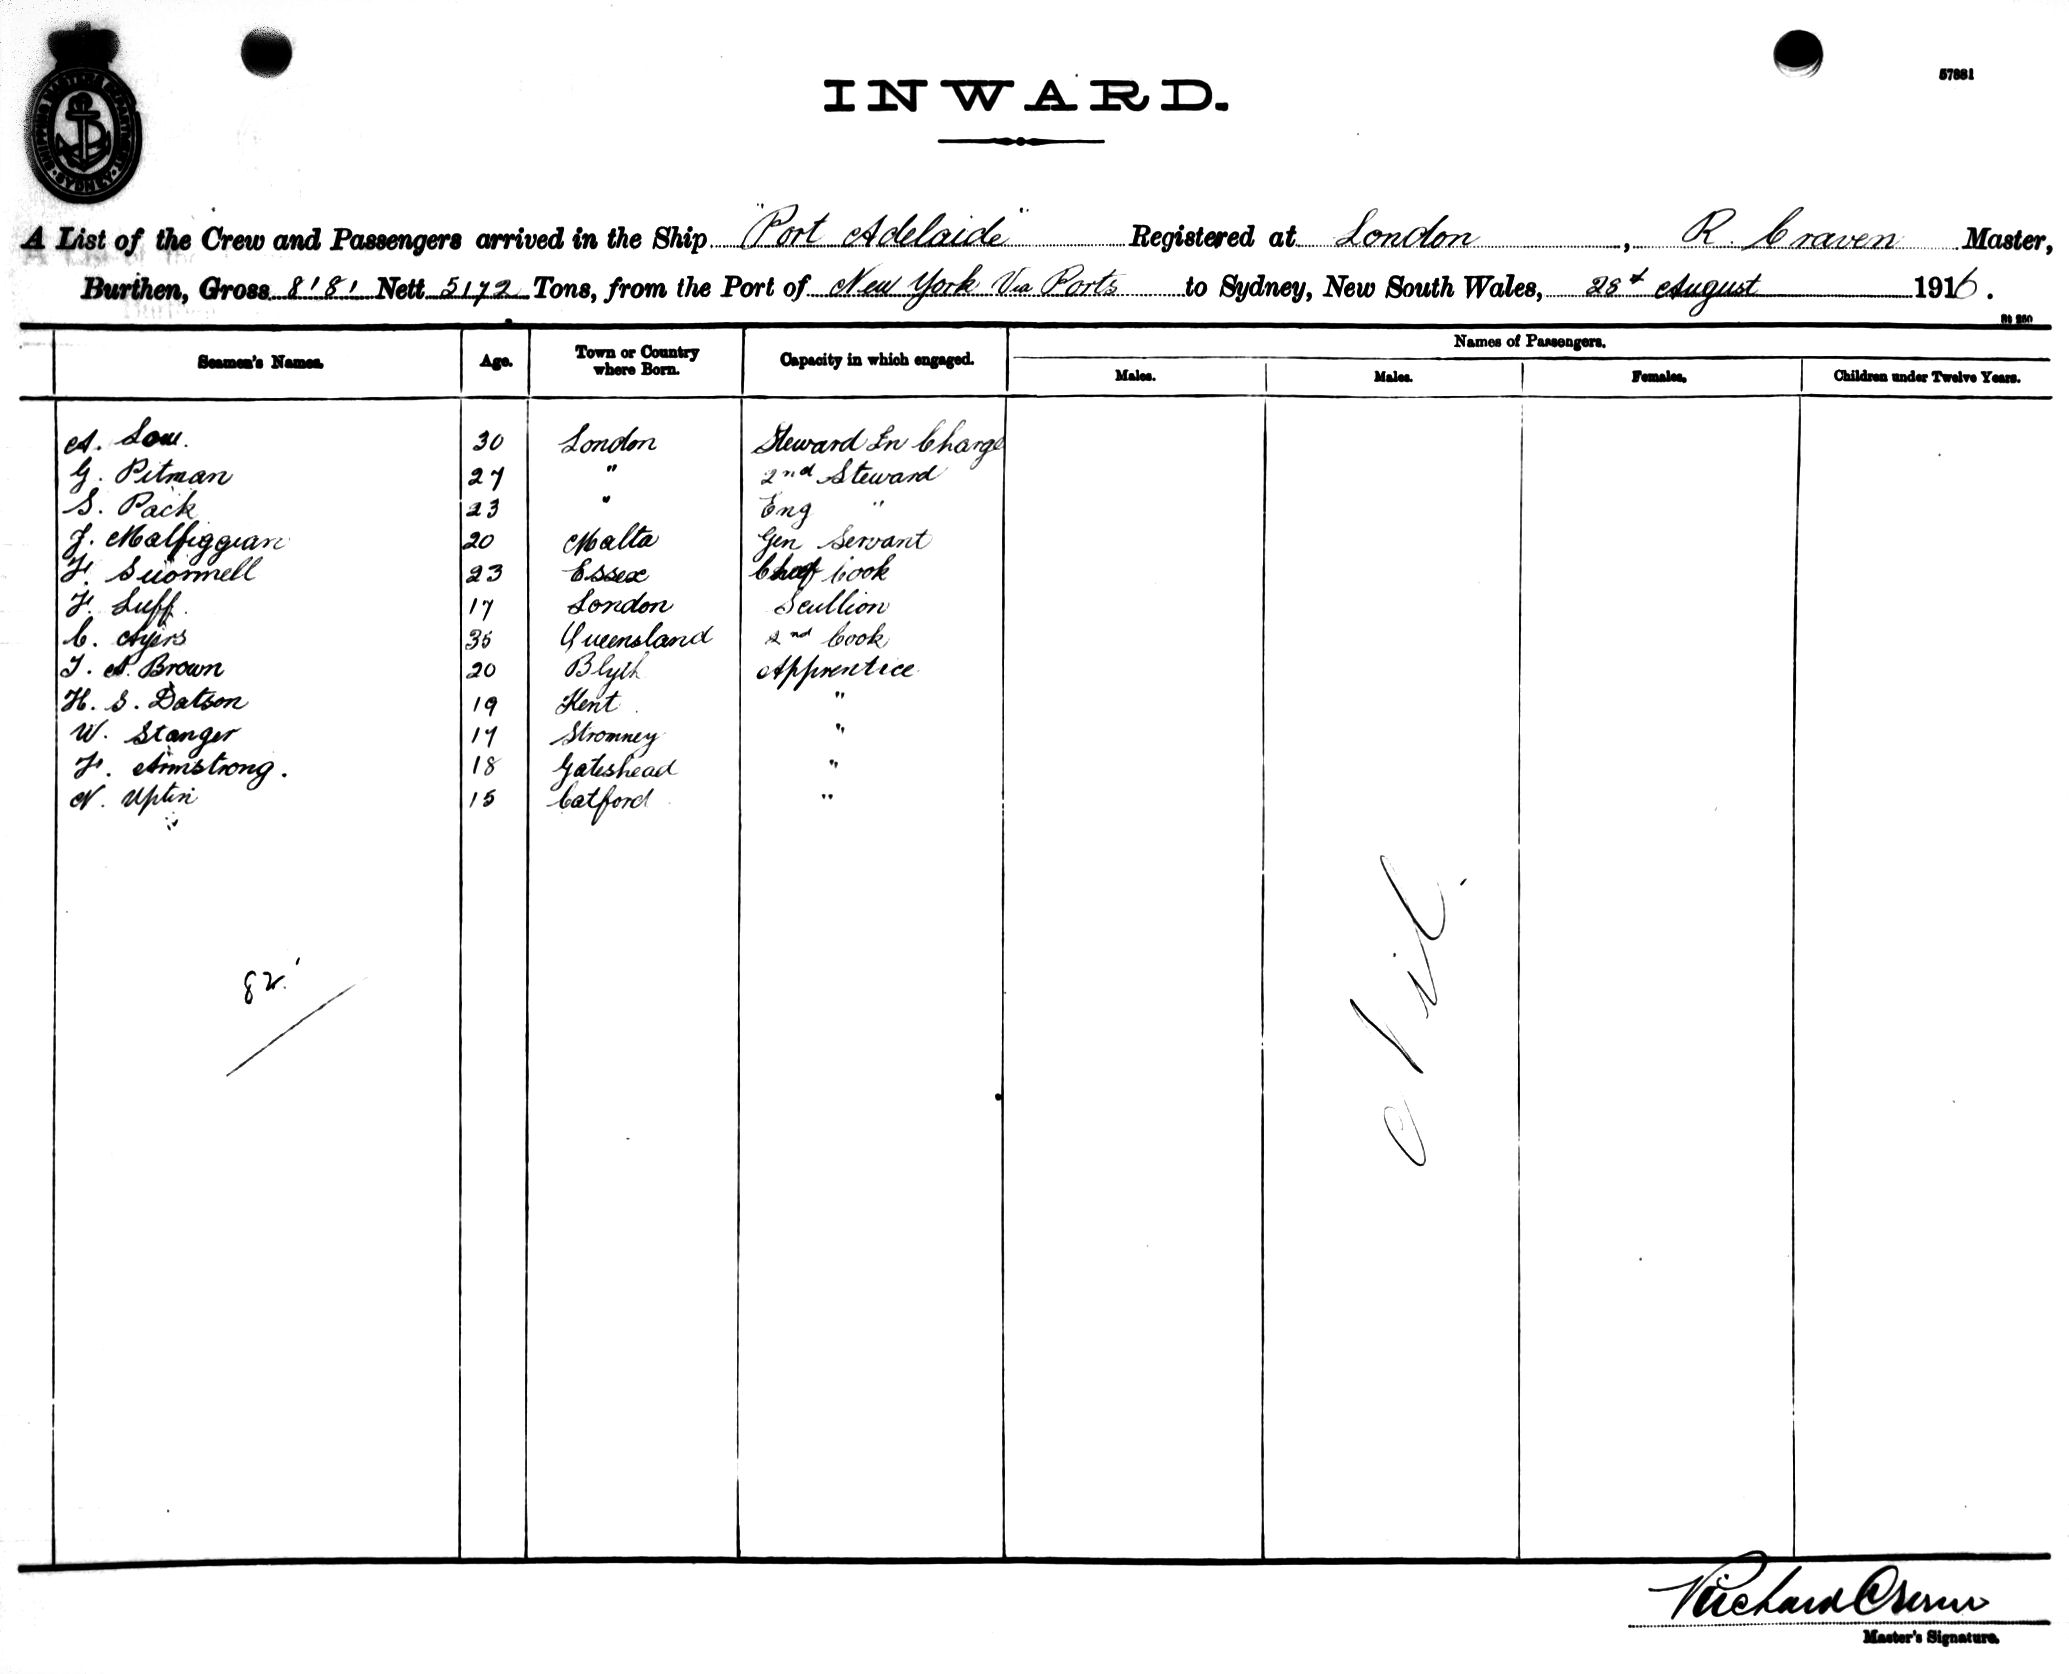 57881
SHIPPING MASTERS DEPARTMENT SYDNEY
INWARD.
A List of the Crew and Passengers arrived in the Ship "Port Adelaide" Registered at London, R. Craven Master,
Burthen, Gross 8181 Nett 5172 Tons, from the Port of New York Via Ports to Sydney, New South Wales, 28th August 1916.
Seamen's Names. Age. Town or Country where Born. Capacity in which engaged. Names of Passengers.
Males. Males. Females. Children under Twelve Years.
A. Low. 30 London Steward In Charge
G. Pitman 27 " 2nd Steward
S. Pack 23 " Eng "
J. Malfiggian 20 Malta Gen Servant
F. 23 Essex Chief Cook
F. Luff. 17 London Scullion
C. Ayers 35 Queensland 2nd Cook
T. A. Brown 20 Blyth Apprentice
H. S. Datson 19 Kent "
W. Stanger 17 Stromney "
F. Armstrong. 18 Gateshead "
N. Upton 15 Catford "
82
Nil.
Richard Craven
Master's Signature.